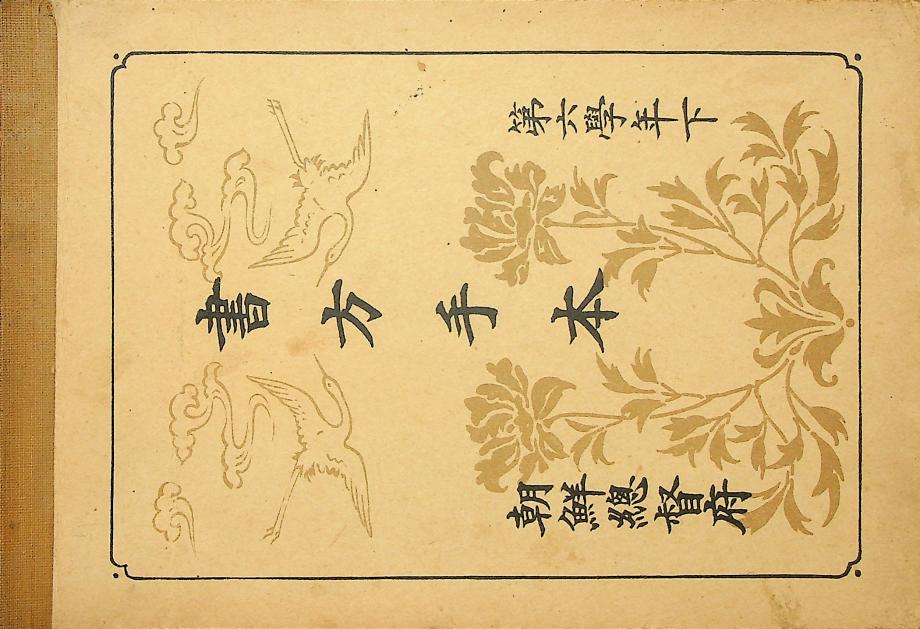 第六學年下
書方手本
朝鮮總督府